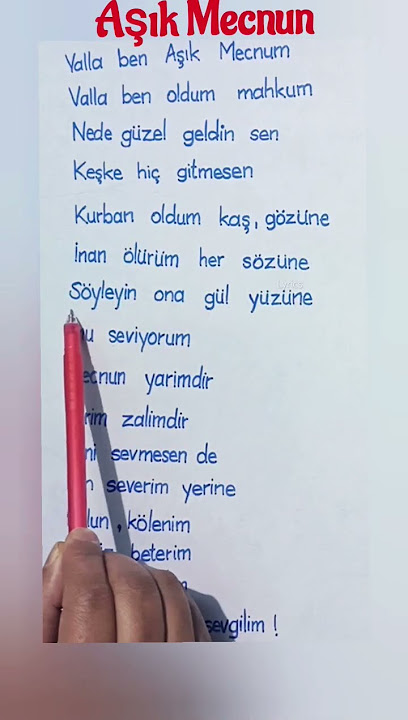 Aşık Mecnun
Yalla ben Aşık Mecnum
Valla ben oldum mahkum
Nede güzel geldin sen
Keşke hiç gitmesen
Kurban oldum kaş, gözüne
İnan ölürüm her sözüne
Söyleyin ona gül yüzüne
seviyorum
yarimdir
zalimdir
sevmesen de
severim yerine
, kölenim
beterim
sevgilim !